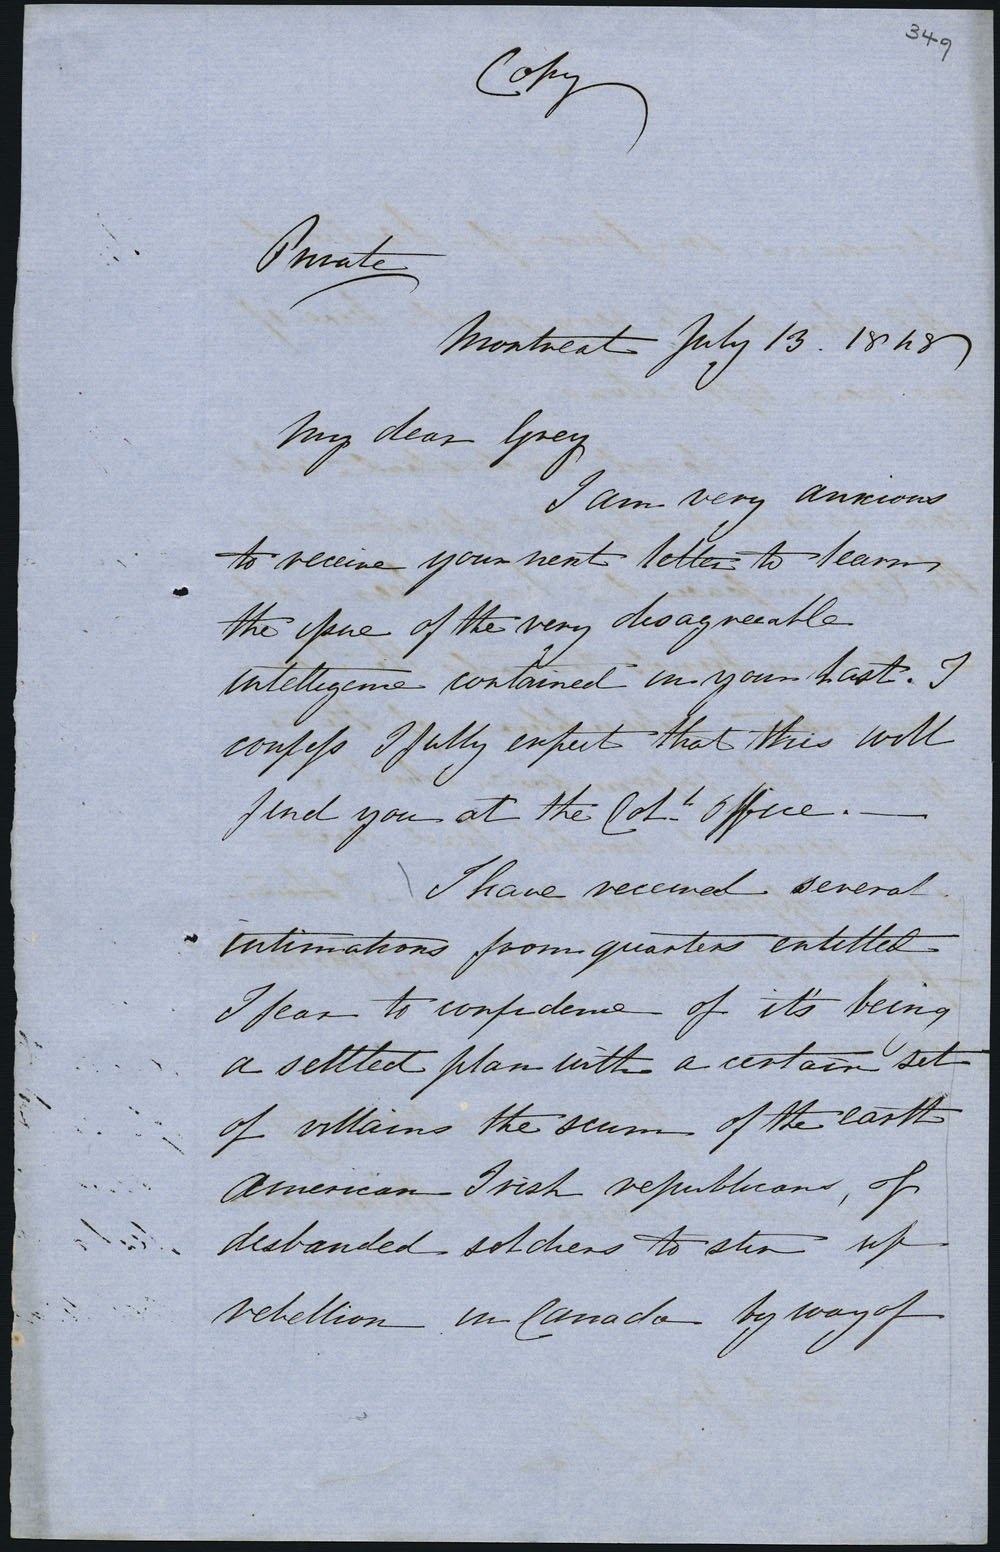 349
Copy
Private
Montreal July 13. 1848
My dear Grey
I am very anxious
to receive your next letter to learn
the issue of the very disagreeable
intelligence contained in your last. I
confess I fully expect that this will
find you at the Col.l Office. —
I have received several
intimations from quarters entitled
I fear to confidence of it's being
a settled plan with a certain set
of villains the scum of the earth
American Irish republicans, of
disbanded soldiers to stir up
rebellion in Canada by way of